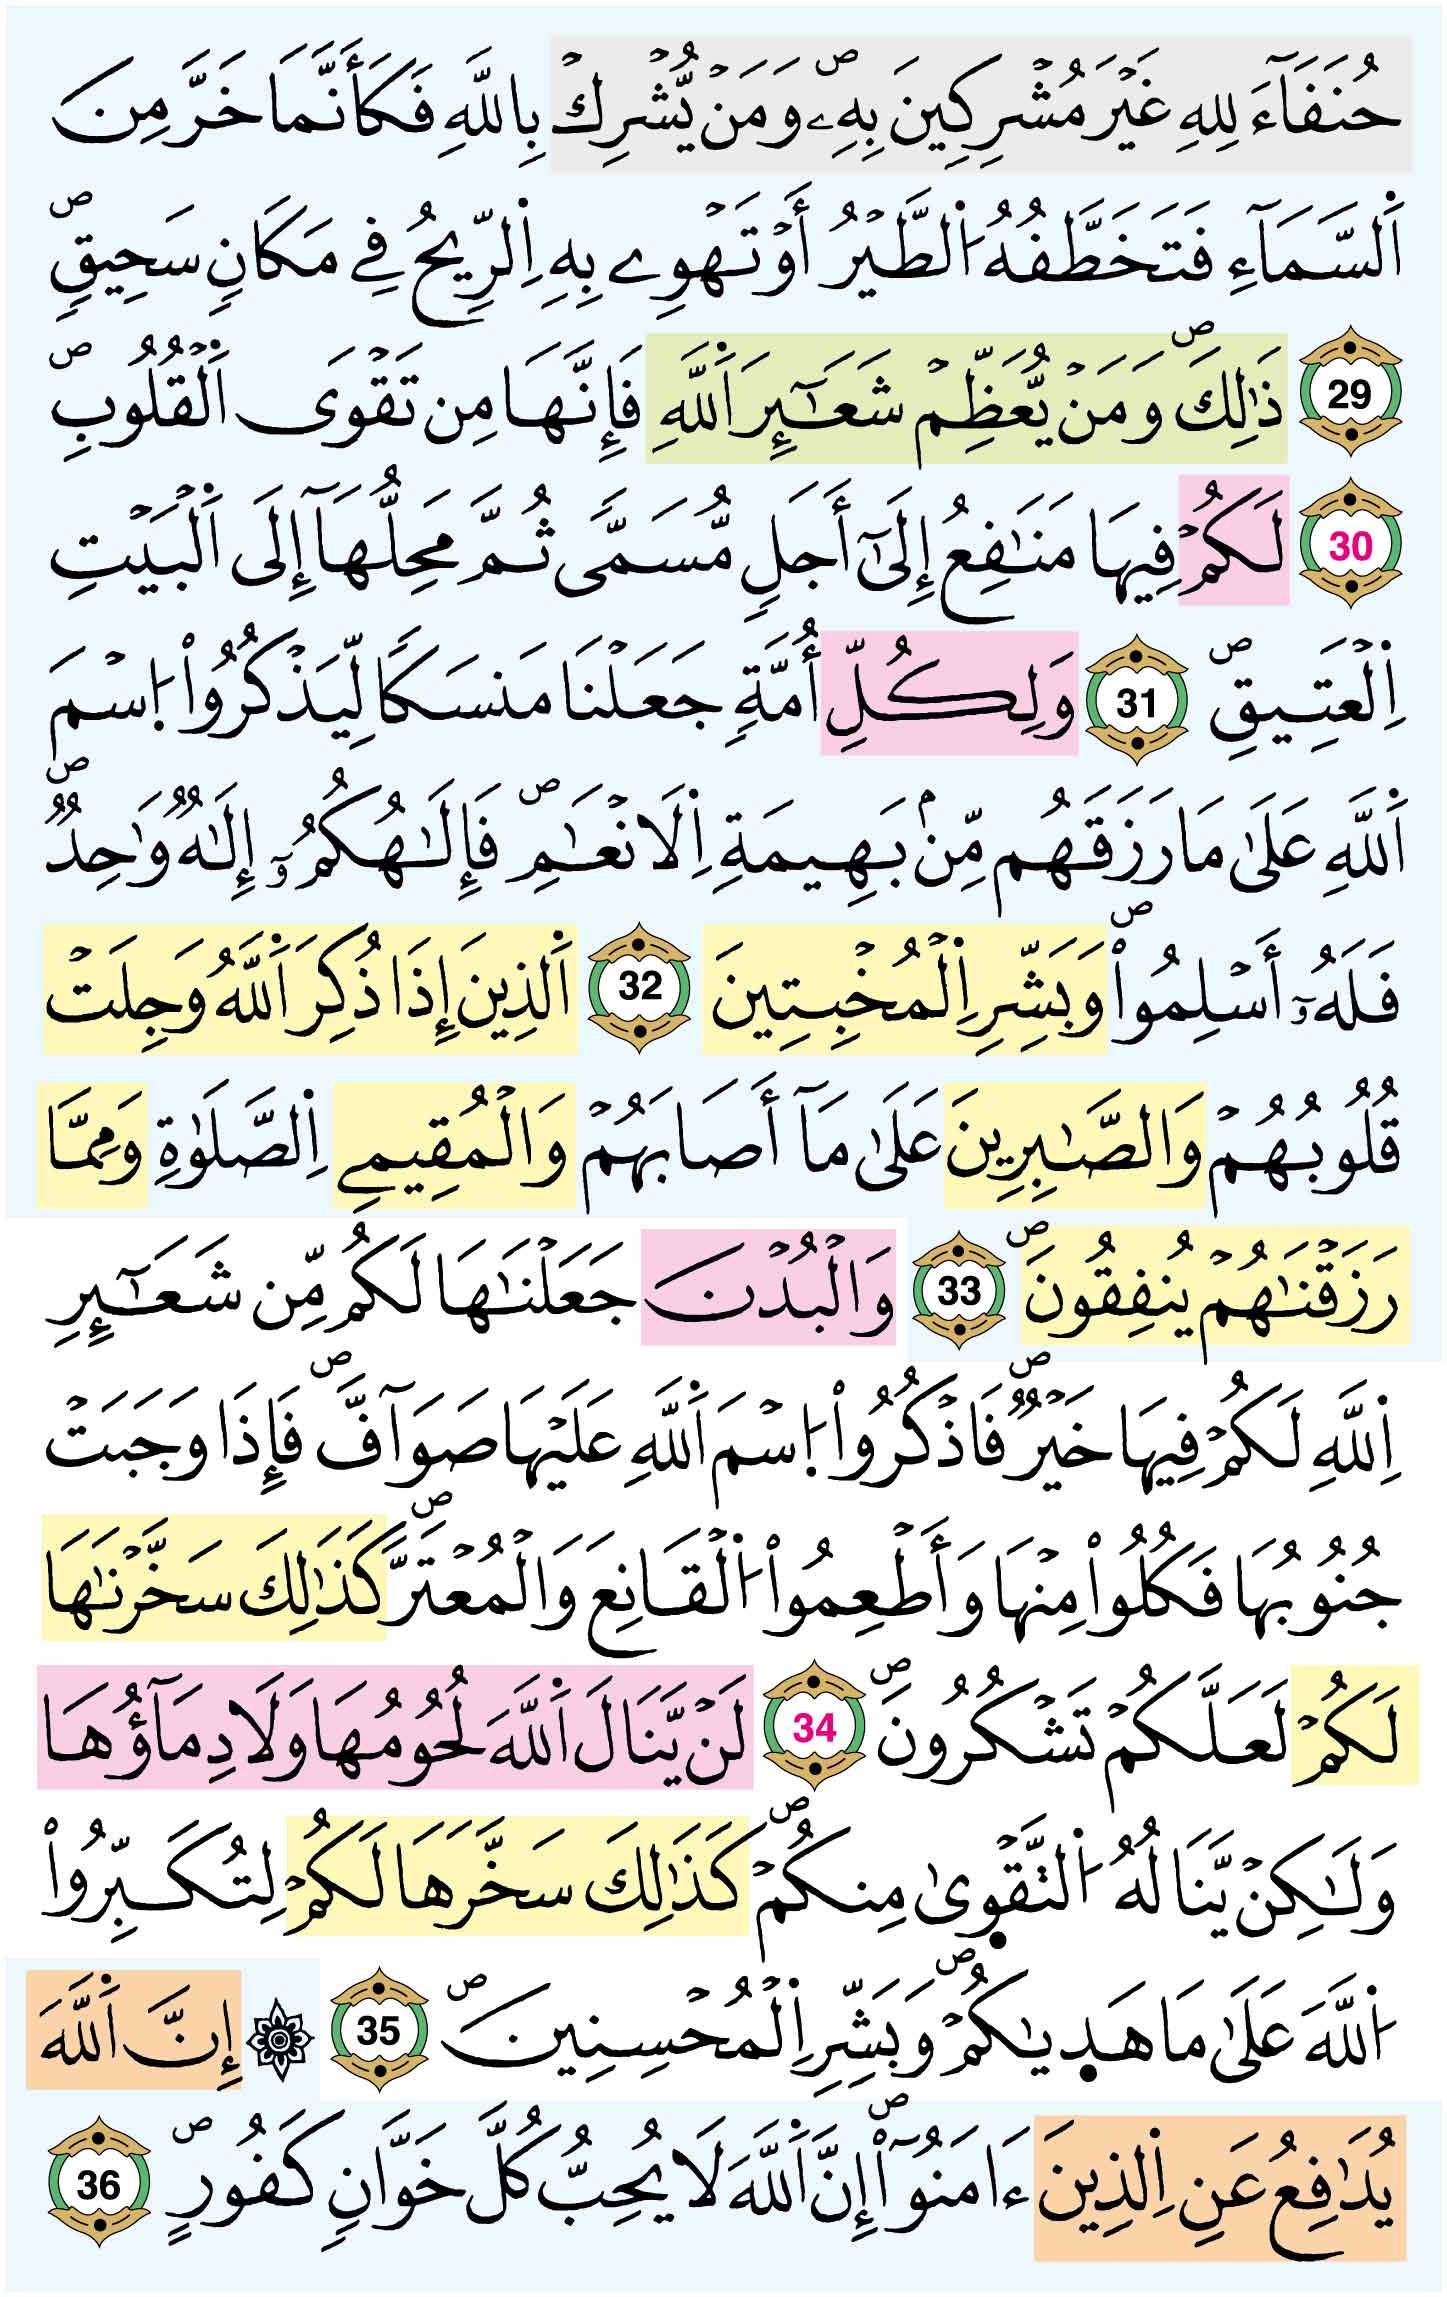 حُنَفَآءَ لِلهِ غَيْرَ مُشْرِكِينَ بِهِۦۖ وَمَنْ يُّشْرِكْ بِاللَّهِ فَكَأَنَّمَا خَرَّ مِنَ
اَ۬لسَّمَآءِ فَتَخَطَّفُهُ اُ۬لطَّيْرُ أَوْ تَهْوِے بِهِ اِ۬لرِّيحُ فِے مَكَانٖ سَحِيقٖۖ
29 ذَٰلِكَۖ وَمَنْ يُّعَظِّمْ شَعَٰٓئِرَ اَ۬للَّهِ فَإِنَّهَا مِن تَقْوَى اَ۬لْقُلُوبِۖ
30 لَكُمْ فِيهَا مَنَٰفِعُ إِلَىٰٓ أَجَلٖ مُّسَمّٗى ثُمَّ مَحِلُّهَآ إِلَى اَ۬لْبَيْتِ
اِ۬لْعَتِيقِۖ 31 وَلِكُلِّ أُمَّةٖ جَعَلْنَا مَنسَكاٗ لِّيَذْكُرُواْ اُ۪سْمَ
اَ۬للَّهِ عَلَىٰ مَا رَزَقَهُم مِّنۢ بَهِيمَةِ اِ۬لَانْعَٰمِۖ فَإِلَٰهُكُمُۥٓ إِلَٰهٞ وَٰحِدٞۖ
فَلَهُۥٓ أَسْلِمُواْۖ وَبَشِّرِ اِ۬لْمُخْبِتِينَ 32 اَ۬لَّذِينَ إِذَا ذُكِرَ اَ۬للَّهُ وَجِلَتْ
قُلُوبُهُمْ وَالصَّٰبِرِينَ عَلَىٰ مَآ أَصَابَهُمْ وَالْمُقِيمِے اِ۬لصَّلَوٰةِ وَمِمَّا
رَزَقْنَٰهُمْ يُنفِقُونَۖ 33 وَالْبُدْنَ جَعَلْنَٰهَا لَكُم مِّن شَعَٰٓئِرِ
اِ۬للَّهِ لَكُمْ فِيهَا خَيْرٞۖ فَاذْكُرُواْ اُ۪سْمَ اَ۬للَّهِ عَلَيْهَا صَوَآفَّۖ فَإِذَا وَجَبَتْ
جُنُوبُهَا فَكُلُواْ مِنْهَا وَأَطْعِمُواْ اُ۬لْقَانِعَ وَالْمُعْتَرَّۖ كَذَٰلِكَ سَخَّرْنَٰهَا
لَكُمْ لَعَلَّكُمْ تَشْكُرُونَۖ 34 لَنْ يَّنَالَ اَ۬للَّهَ لُحُومُهَا وَلَا دِمَآؤُهَا
وَلَٰكِنْ يَّنَالُهُ اُ۬لتَّقْو۪ىٰ مِنكُمْۖ كَذَٰلِكَ سَخَّرَهَا لَكُمْ لِتُكَبِّرُواْ
اُ۬للَّهَ عَلَىٰ مَا هَد۪يٰكُمْۖ وَبَشِّرِ اِ۬لْمُحْسِنِينَۖ 35 ۞ إِنَّ اَ۬للَّهَ
يُدَٰفِعُ عَنِ اِ۬لَّذِينَ ءَامَنُوٓاْۖ إِنَّ اَ۬للَّهَ لَا يُحِبُّ كُلَّ خَوَّانٖ كَفُورٍۖ 36